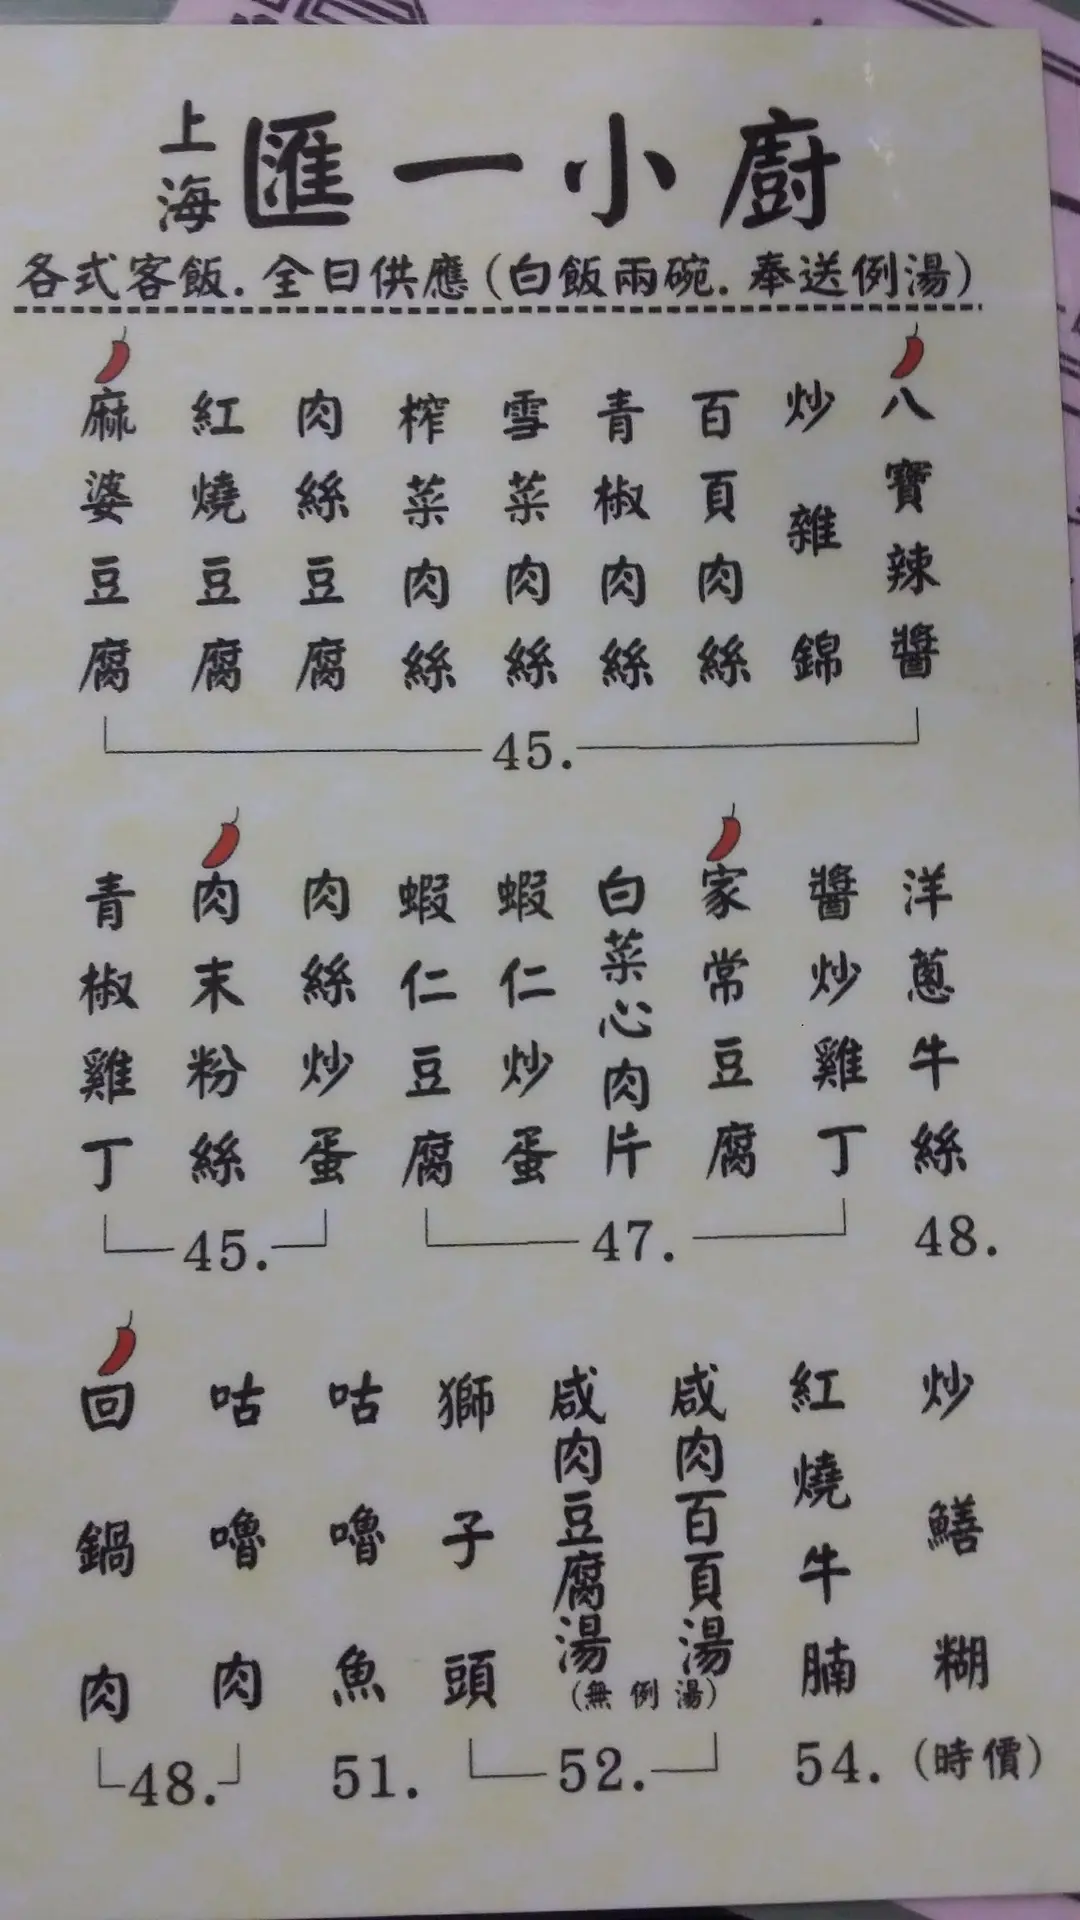 上海 匯一小廚
各式客飯.全日供應(白飯兩碗.奉送例湯)
麻婆豆腐
紅燒豆腐
肉絲豆腐
榨菜肉絲
雪菜肉絲
青椒肉絲
百頁肉絲
炒雜錦
八寶辣醬
45.
青椒雞丁
肉末粉絲
肉絲炒蛋
45.
蝦仁豆腐
蝦仁炒蛋
白菜心肉片
家常豆腐
醬炒雞丁
47.
洋蔥牛絲
48.
回鍋肉
咕嚕肉
48.
咕嚕魚
51.
獅子頭
咸肉豆腐湯
咸肉百頁湯
(無例湯)
52.
紅燒牛腩
54.
炒鱔糊
(時價)